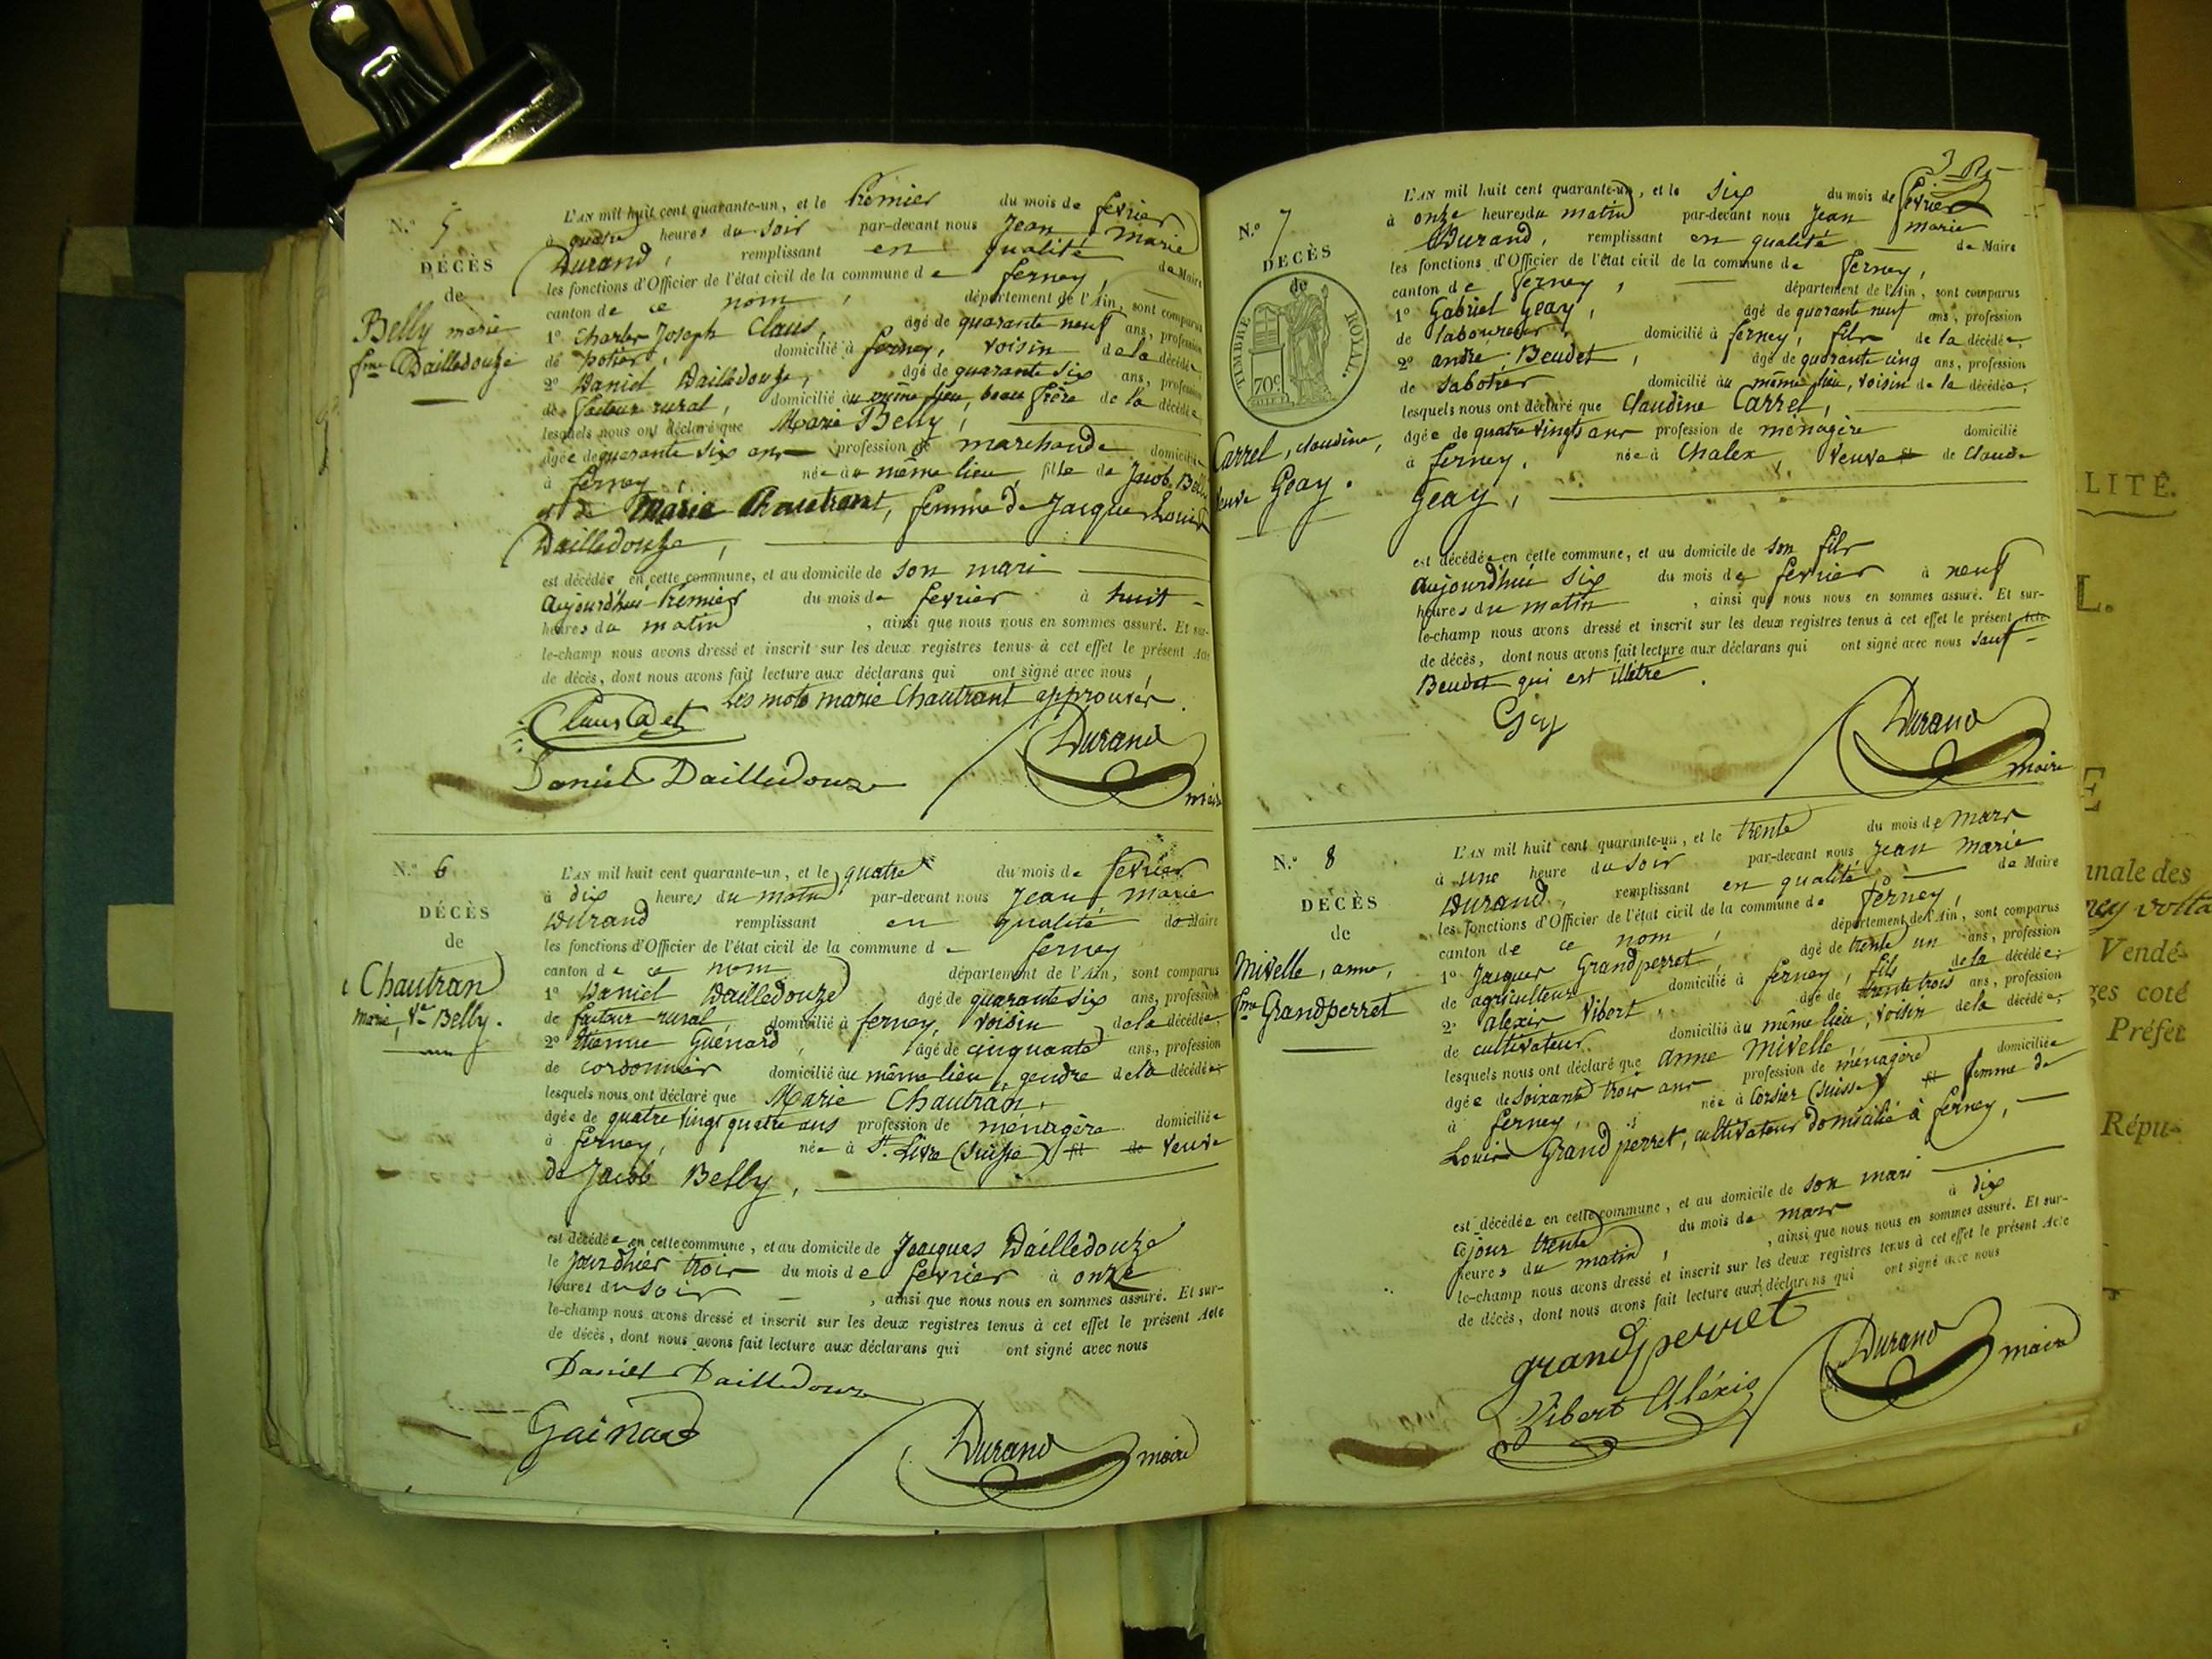 N.º 5
DÉCÈS
de
Belly marie
fme Dailledouze
L'AN mil huit cent quarante-un, et le Premier du mois de fevrier
à quatre heures du soir par-devant nous Jean Marie
Durand, remplissant en qualité de Maire
les fonctions d'Officier de l'état civil de la commune de ferney,
canton de ce nom, département de l'Ain, sont comparus
1º Charles Joseph Claus, âgé de quarante neuf ans, profession
de Potier, domicilié à ferney, voisin de la décédée
2º Daniel Dailledouze, âgé de quarante six ans, profession
de facteur rural, domicilié au même lieu, beau frère de la décédée
lesquels nous ont déclaré que Marie Belly,
âgée de quarante six ans profession de marchande domiciliée
à ferney, née au même lieu, fille de Jacob Belly
et de Marie Chautrant, femme de Jacques Louis
Dailledouze,
est décédée en cette commune, et au domicile de son mari
aujourd'hui Premier du mois de fevrier à huit
heures du matin, ainsi que nous nous en sommes assuré. Et sur-
le-champ nous avons dressé et inscrit sur les deux registres tenus à cet effet le présent Acte
de décès, dont nous avons fait lecture aux déclarans qui ont signé avec nous,
Les mots marie Chautrant approuvés.
Claus Cadet
Durand
maire
Daniel Dailledouze
N.º 6
DÉCÈS
de
Chautran
marie, Ve Belly.
L'AN mil huit cent quarante-un, et le quatre du mois de fevrier
à dix heures du matin par-devant nous Jean Marie
Durand remplissant en qualité de Maire
les fonctions d'Officier de l'état civil de la commune de ferney
canton de ce nom département de l'Ain, sont comparus
1º Daniel Dailledouze âgé de quarante six ans, profession
de facteur rural, domicilié à ferney, voisin de la décédée,
2º Etienne Guénard, âgé de cinquante ans, profession
de cordonnier domicilié au même lieu, gendre de la décédée;
lesquels nous ont déclaré que Marie Chautran,
âgée de quatre vingt quatre ans profession de menagère domiciliée
à ferney, née à St. Livre (Suisse) fil de veuve
de Jacob Belly,
est décédée en cette commune, et au domicile de Jacques Dailledouze
le jour d'hier trois du mois de fevrier à onze
heures du soir, ainsi que nous nous en sommes assuré. Et sur-
le-champ nous avons dressé et inscrit sur les deux registres tenus à cet effet le présent Acte
de décès, dont nous avons fait lecture aux déclarans qui ont signé avec nous
Daniel Dailledouze
Gainard
Durand maire
N.º 7
DÉCÈS
de
TIMBRE ROYAL.
70c
Carrel, claudine,
veuve Geay.
L'AN mil huit cent quarante-un, et le six du mois de fevrier
à onze heures du matin par-devant nous Jean marie
Durand, remplissant en qualité de Maire
les fonctions d'Officier de l'état civil de la commune de ferney,
canton de ferney, département de l'Ain, sont comparus
1º Gabriel Geay, âgé de quarante neuf ans, profession
de laboureur, domicilié à ferney, fils de la décédée,
2º andré Beudet, âgé de quarante cinq ans, profession
de sabotier domicilié au même lieu, voisin de la décédée,
lesquels nous ont déclaré que Claudine Carrel,
âgée de quatre vingts ans profession de ménagère domicilié
à ferney, née à Chalex, veuve de claude
Geay,
est décédée en cette commune, et au domicile de son fils
aujourd'hui six du mois de fevrier à neuf
heures du matin, ainsi que nous nous en sommes assuré. Et sur-
le-champ nous avons dressé et inscrit sur les deux registres tenus à cet effet le présent Acte
de décès, dont nous avons fait lecture aux déclarans qui ont signé avec nous sauf
Beudet qui est illétré.
Gey
Durand
maire
N.º 8
DÉCÈS
de
Mivelle, anne,
fme Grandperret
L'AN mil huit cent quarante-un, et le trente du mois de mars
à une heure du soir par-devant nous Jean Marie
Durand, remplissant en qualité de Maire
les fonctions d'Officier de l'état civil de la commune de ferney,
canton de ce nom, département de l'Ain, sont comparus
1º Jacques Grandperret, âgé de trente un ans, profession
de agriculteur domicilié à ferney, fils de la décédée;
2º alexis Vibert, âgé de trente trois ans, profession
de cultivateur domicilié au même lieu, voisin de la décédée,
lesquels nous ont déclaré que anne Mivelle,
âgée de soixante trois ans profession de ménagère domiciliée
à ferney, née à Corsier (Suisse) fil femme de
Louis Grandperret, cultivateur domicilié à ferney,
est décédée en cette commune, et au domicile de son mari
ce jour trente du mois de mars à dix
heures du matin, ainsi que nous nous en sommes assuré. Et sur-
le-champ nous avons dressé et inscrit sur les deux registres tenus à cet effet le présent Acte
de décès, dont nous avons fait lecture aux déclarans qui ont signé avec nous
grandperret
Vibert Aléxis
Durand maire
LITÉ.
L.
E
nnale des
ney volta
Vendé-
ges coté
Préfet
Répu-